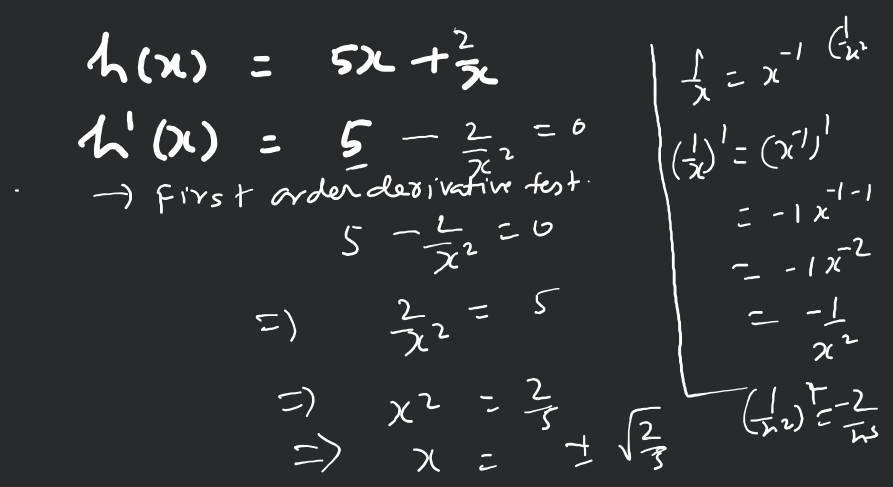 h(x) = 5x + 2/x
h'(x) = 5 - 2/x² = 0
→ first order derivative test.
5 - 2/x² = 0
=> 2/x² = 5
=> x² = 2/5
=> x = ±
1/x = x⁻¹
(1/x)' = (x⁻¹)'
= -1x⁻¹⁻¹
= -1x⁻²
= -1/x²